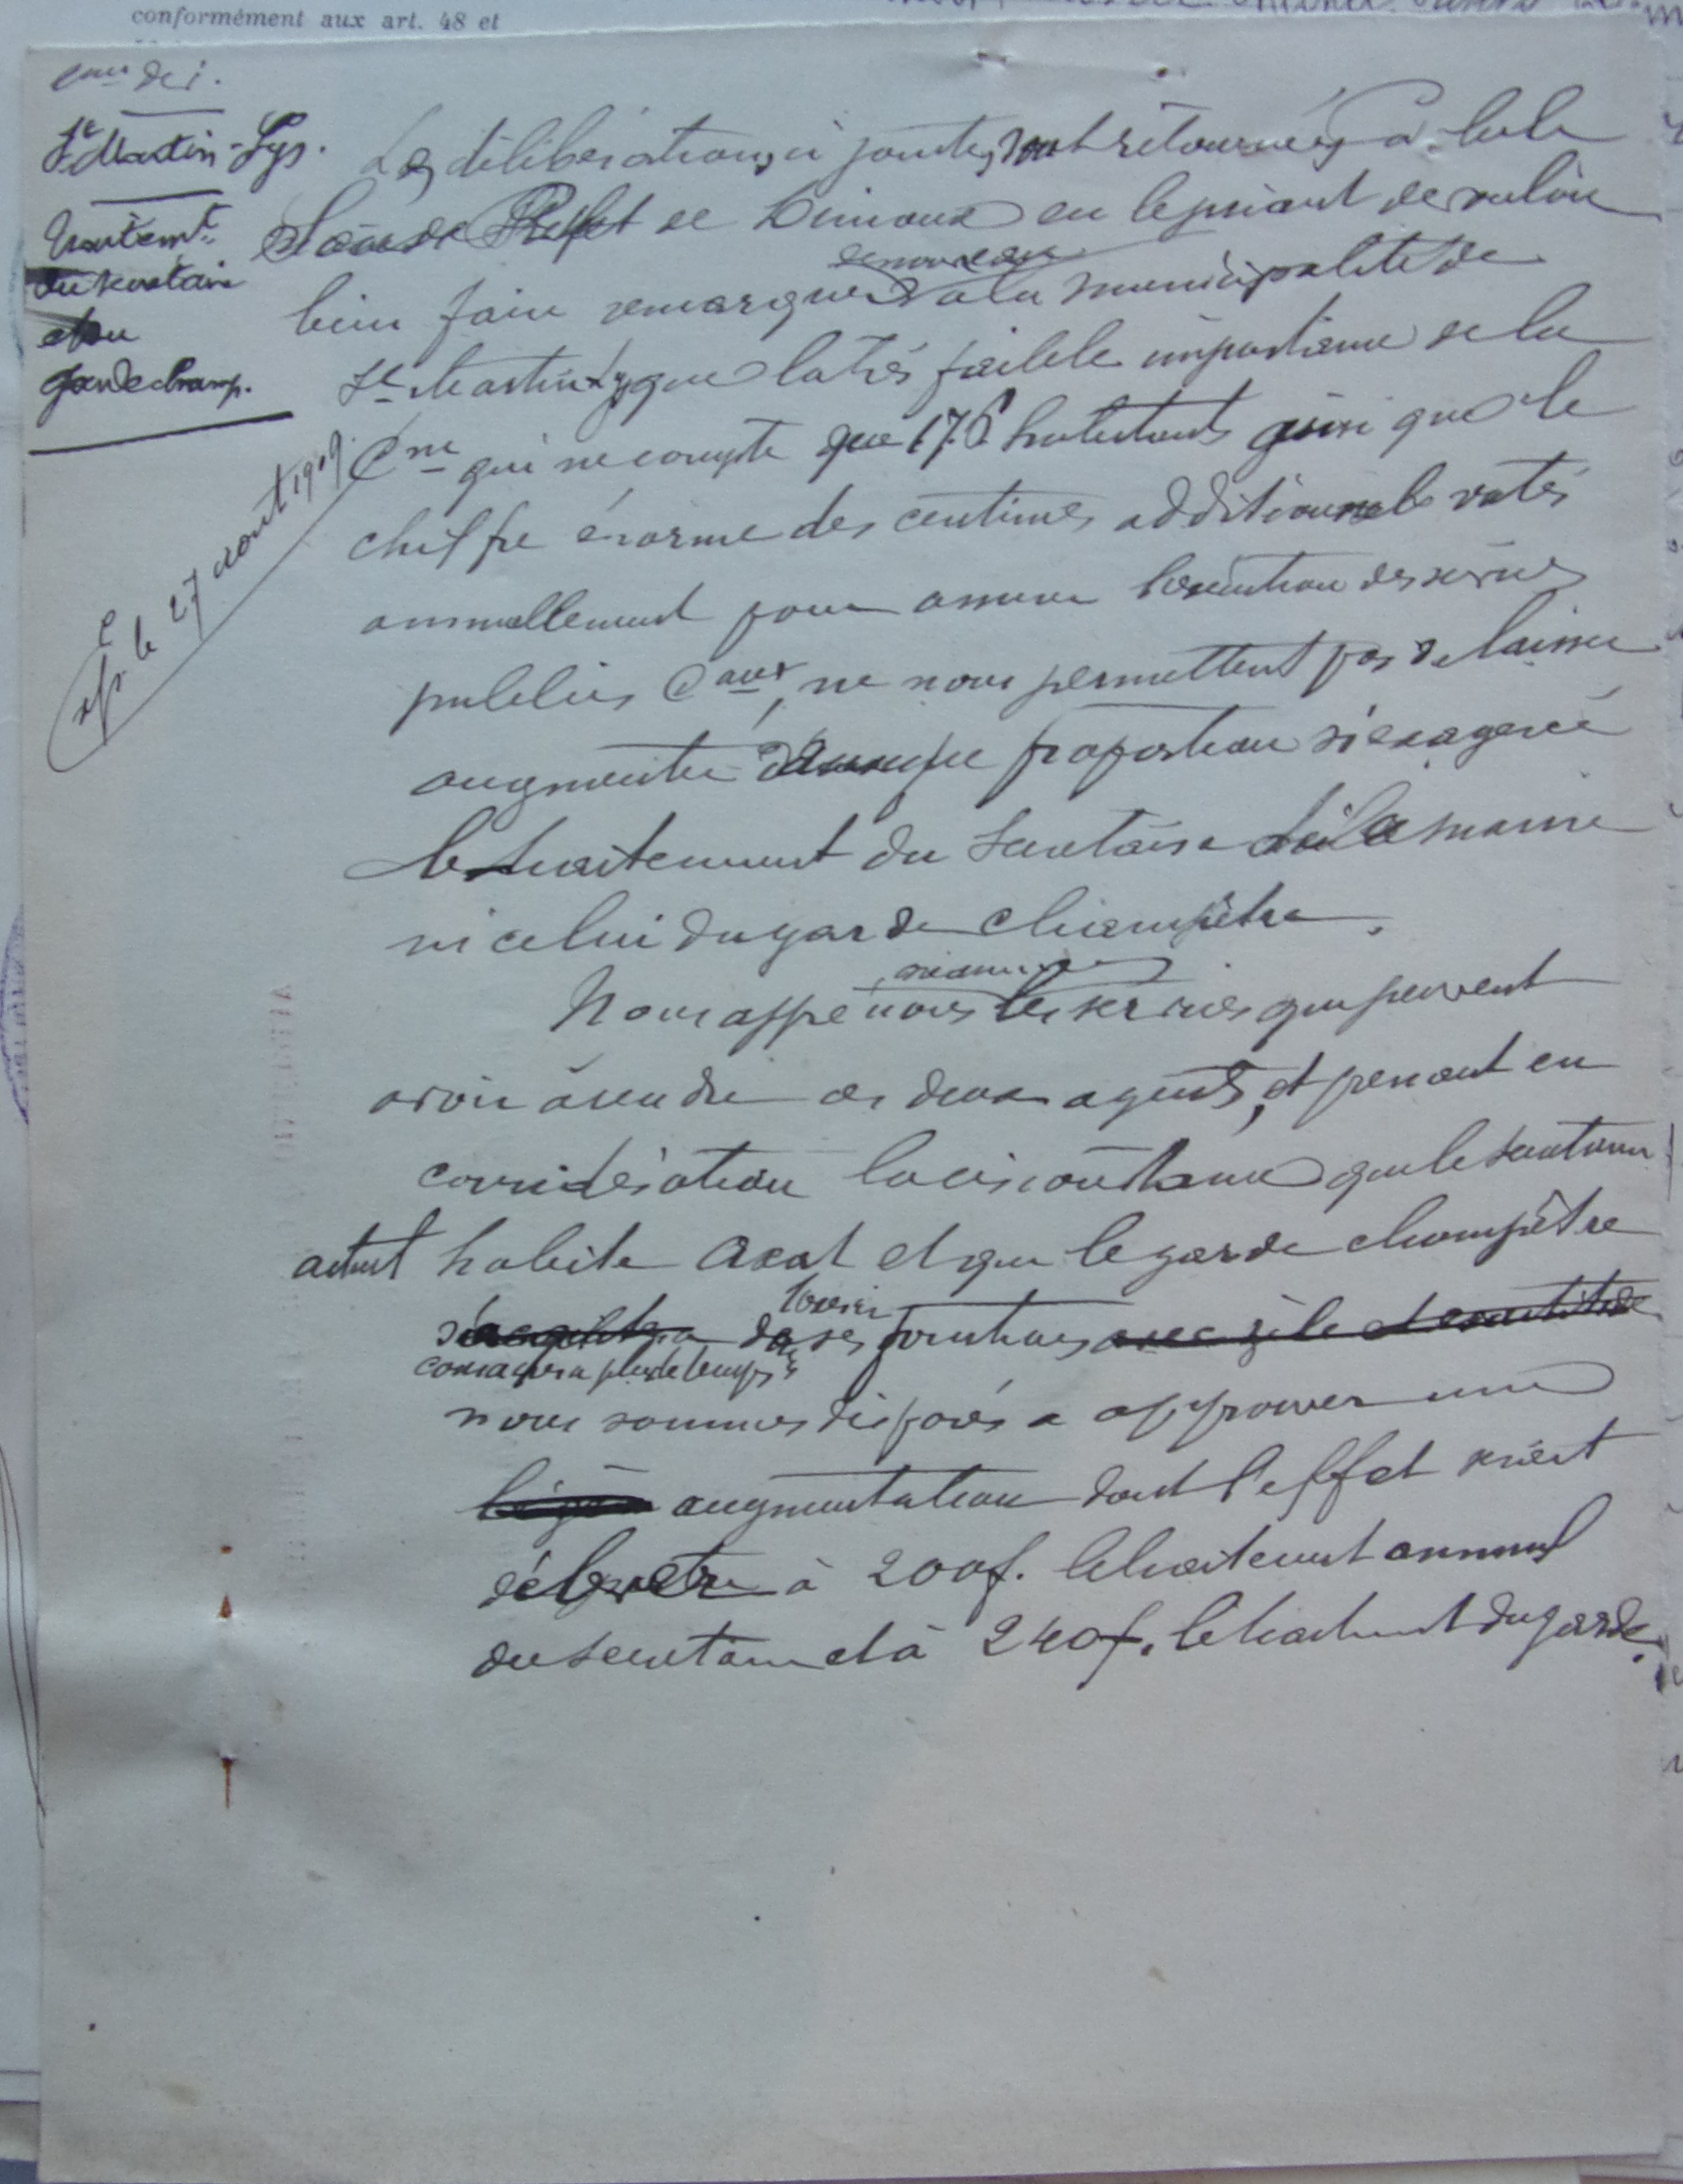 conformément aux art. 48 et
St Martin-Lys.
Traitemt.
du secrétaire
et du
garde champ.
exp. le 27 août 1919.
Les délibérations ci jointes sont retournées à M. le
Sous Préfet de Limoux en le priant de vouloir
de nouveau
bien faire remarquer à la municipalité de
St Martin Lys que la très faible importance de la
Cne qui ne compte que 176 habitants ainsi que le
chiffre énorme des centimes additionnels votés
annuellement pour assurer l'exécution des services
publics Caux, ne nous permettent pas de laisser
augmenter dans une proportion si exagérée
le traitement du secrétaire de la mairie
ni celui du garde champêtre.
néanmoins
Nous apprécions les services que peuvent
avoir à rendre ces deux agents, et prenant en
considération la circonstance que le secrétaire
actuel habite Axat et que le garde champêtre
l'exercice
s'acquittera de ses fonctions avec zèle et exactitude
consacrera plus de temps à
nous sommes disposés à approuver une
légère augmentation dont l'effet serait
d'élever à 200f. le traitement annuel
du secrétaire et à 240f. le traitement du garde.